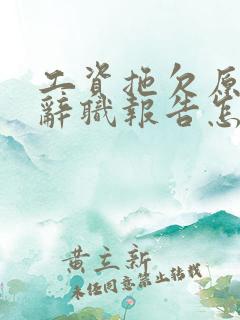 工資拖欠原
辭職報告怎
黃立新
未經同意禁止轉載